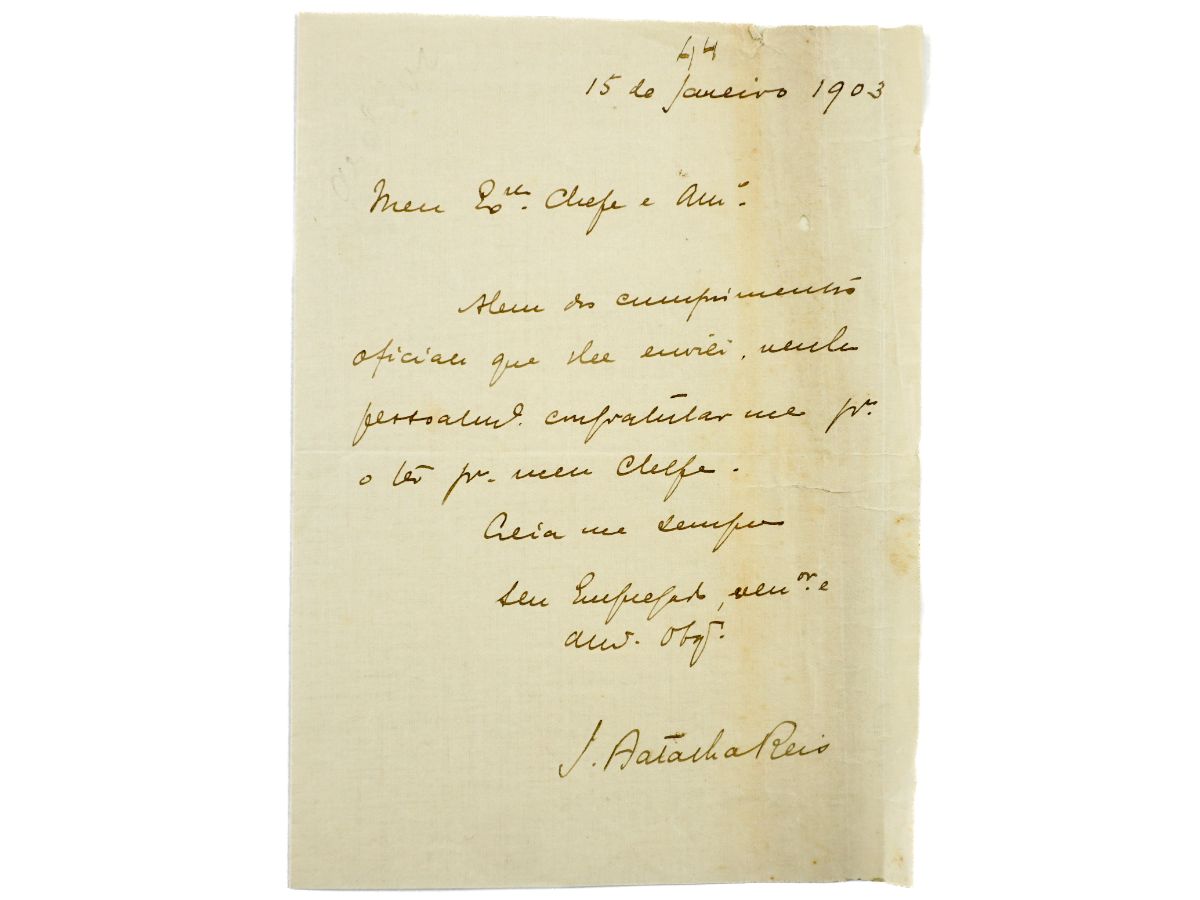 15 de Janeiro 1903
Meu Exmo. Chefe e Amo.
Alem dos cumprimentos
oficiaes que lhe enviei, venho
pessoalme. congratular me pr.
o ter pr. meu Chefe.
Creia me sempre
seu Empregado, venor. e
amo. Obgo.
J. Batalha Reis